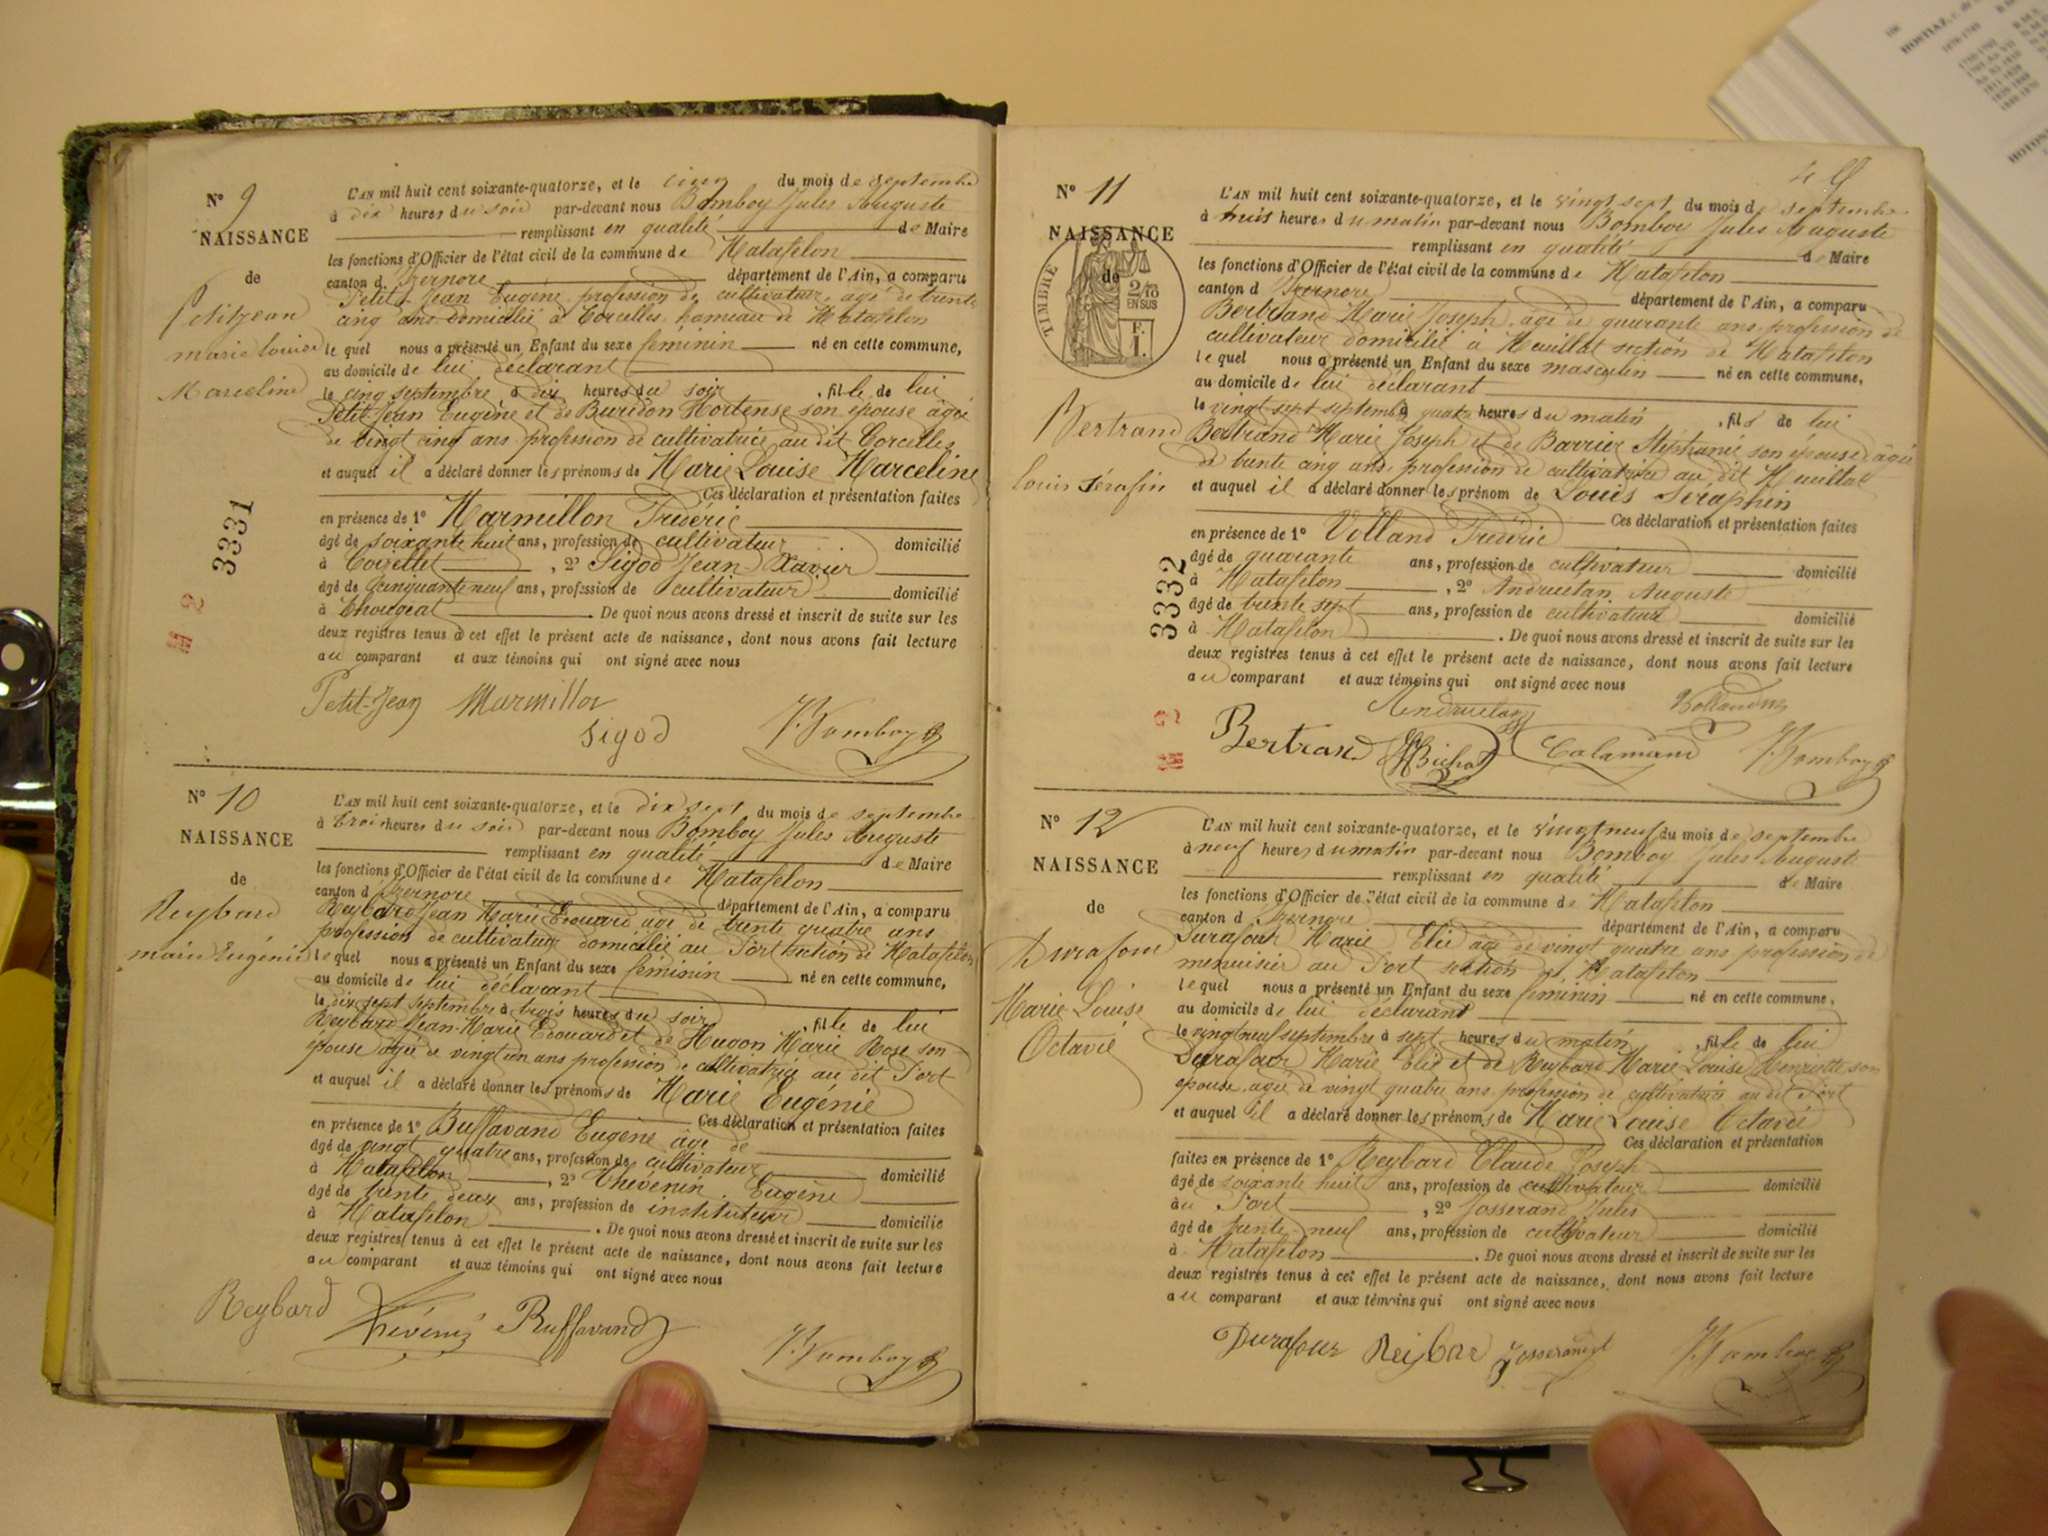 N° 9
NAISSANCE
de
Petitjean
marie louise
Marceline
L'AN mil huit cent soixante-quatorze, et le cinq du mois de septembre
à dix heures du soir par-devant nous Bomboy Jules Auguste
remplissant en qualité de Maire
les fonctions d'Officier de l'état civil de la commune de Matafelon
canton d'Izernore département de l'Ain, a comparu
Petit-Jean Eugène profession de cultivateur, agé de trente
cinq ans domicilié à Corcelles hameau de Matafelon
le quel nous a présenté un Enfant du sexe féminin né en cette commune,
au domicile de lui déclarant
le cinq septembre à dix heures du soir, fille de lui
Petit-Jean Eugène et de Buridon Hortense son épouse âgée
de vingt cinq ans profession de cultivatrice au dit Corcelles
et auquel il a déclaré donner les prénoms de Marie Louise Marceline
Ces déclaration et présentation faites
en présence de 1° Marmillon Frédéric
âgé de soixante huit ans, profession de cultivateur domicilié
à Corcelles, 2° Sigod Jean Xavier
âgé de cinquante neuf ans, profession de cultivateur domicilié
à Chougeat. De quoi nous avons dressé et inscrit de suite sur les
deux registres tenus à cet effet le présent acte de naissance, dont nous avons fait lecture
au comparant et aux témoins qui ont signé avec nous
Petit-Jean Marmillon
Sigod J. Bomboy
3331
N° 10
NAISSANCE
de
Reybard
marie Eugénie
L'AN mil huit cent soixante-quatorze, et le dix sept du mois de septembre
à trois heures du soir par-devant nous Bomboy Jules Auguste
remplissant en qualité de Maire
les fonctions d'Officier de l'état civil de la commune de Matafelon
canton d'Izernore département de l'Ain, a comparu
Reybard Jean Marie Edouard agé de trente quatre ans
profession de cultivateur domicilié au Port section de Matafelon
le quel nous a présenté un Enfant du sexe féminin né en cette commune,
au domicile de lui déclarant
le dix sept septembre à trois heures du soir, fille de lui
Reybard Jean-Marie Edouard et de Hugon Marie Rose son
épouse agée de vingt un ans profession de cultivatrice au dit Port
et auquel il a déclaré donner les prénoms de Marie Eugénie
Ces déclaration et présentation faites
en présence de 1° Buffavand Eugène âgé de
âgé de vingt quatre ans, profession de cultivateur domicilié
à Matafelon, 2° Thévenin Eugène
âgé de trente deux ans, profession de instituteur domicilié
à Matafelon. De quoi nous avons dressé et inscrit de suite sur les
deux registres tenus à cet effet le présent acte de naissance, dont nous avons fait lecture
au comparant et aux témoins qui ont signé avec nous
Reybard Thévenin Buffavand J. Bomboy
N° 11
NAISSANCE
de
TIMBRE
2/10
EN SUS
Bertrand
Louis Sérafin
L'AN mil huit cent soixante-quatorze, et le vingt sept du mois de septembre
à huit heures du matin par-devant nous Bomboy Jules Auguste
remplissant en qualité de Maire
les fonctions d'Officier de l'état civil de la commune de Matafelon
canton d'Izernore département de l'Ain, a comparu
Bertrand Marie Joseph agé de quarante ans profession de
cultivateur domicilié à Heuillat section de Matafelon
le quel nous a présenté un Enfant du sexe masculin né en cette commune,
au domicile de lui déclarant
le vingt sept septembre à quatre heures du matin, fils de lui
Bertrand Marie Joseph et de Barrier Stéphanie son épouse âgée
de trente cinq ans, profession de cultivatrice au dit Heuillat
et auquel il a déclaré donner les prénom de Louis Seraphin
Ces déclaration et présentation faites
en présence de 1° Volland Frédéric
âgé de quarante ans, profession de cultivateur domicilié
à Matafelon, 2° Andruetan Auguste
âgé de trente sept ans, profession de cultivateur domicilié
à Matafelon. De quoi nous avons dressé et inscrit de suite sur les
deux registres tenus à cet effet le présent acte de naissance, dont nous avons fait lecture
au comparant et aux témoins qui ont signé avec nous
Andruetan Volland
Bertrand Calamand J. Bomboy
3332
N° 12
NAISSANCE
de
Durafour
Marie Louise
Octavie
L'AN mil huit cent soixante-quatorze, et le vingt neuf du mois de septembre
à neuf heures du matin par-devant nous Bomboy Jules Auguste
remplissant en qualité de Maire
les fonctions d'Officier de l'état civil de la commune de Matafelon
canton d'Izernore département de l'Ain, a comparu
Durafour Marie Elie âgé de vingt quatre ans profession de
menuisier au Port section de Matafelon
le quel nous a présenté un Enfant du sexe féminin né en cette commune,
au domicile de lui déclarant
le vingt neuf septembre à sept heures du matin, fille de lui
Durafour Marie Elie et de Reybard Marie Louise Henriette son
épouse agée de vingt quatre ans profession de cultivatrice au dit Port
et auquel il a déclaré donner les prénoms de Marie Louise Octavie
Ces déclaration et présentation
faites en présence de 1° Reybard Claude Joseph
âgé de soixante huit ans, profession de cultivateur domicilié
au Port, 2° Josserand Jules
âgé de trente-neuf ans, profession de cultivateur domicilié
à Matafelon. De quoi nous avons dressé et inscrit de suite sur les
deux registres tenus à cet effet le présent acte de naissance, dont nous avons fait lecture
au comparant et aux témoins qui ont signé avec nous
Durafour Reibar Josserand J. Bomboy